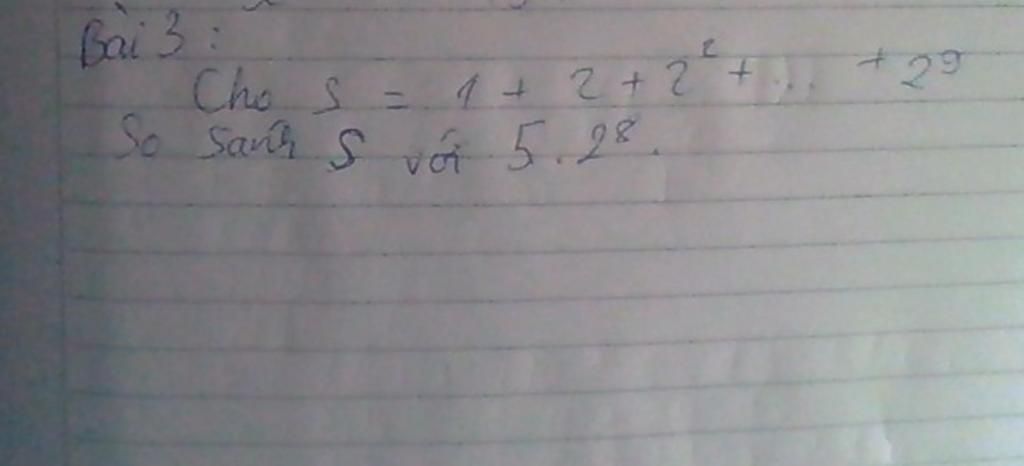 Bài 3 :
Cho S = 1 + 2 + 2² + ... + 2⁹
So sánh S với 5.2⁸.